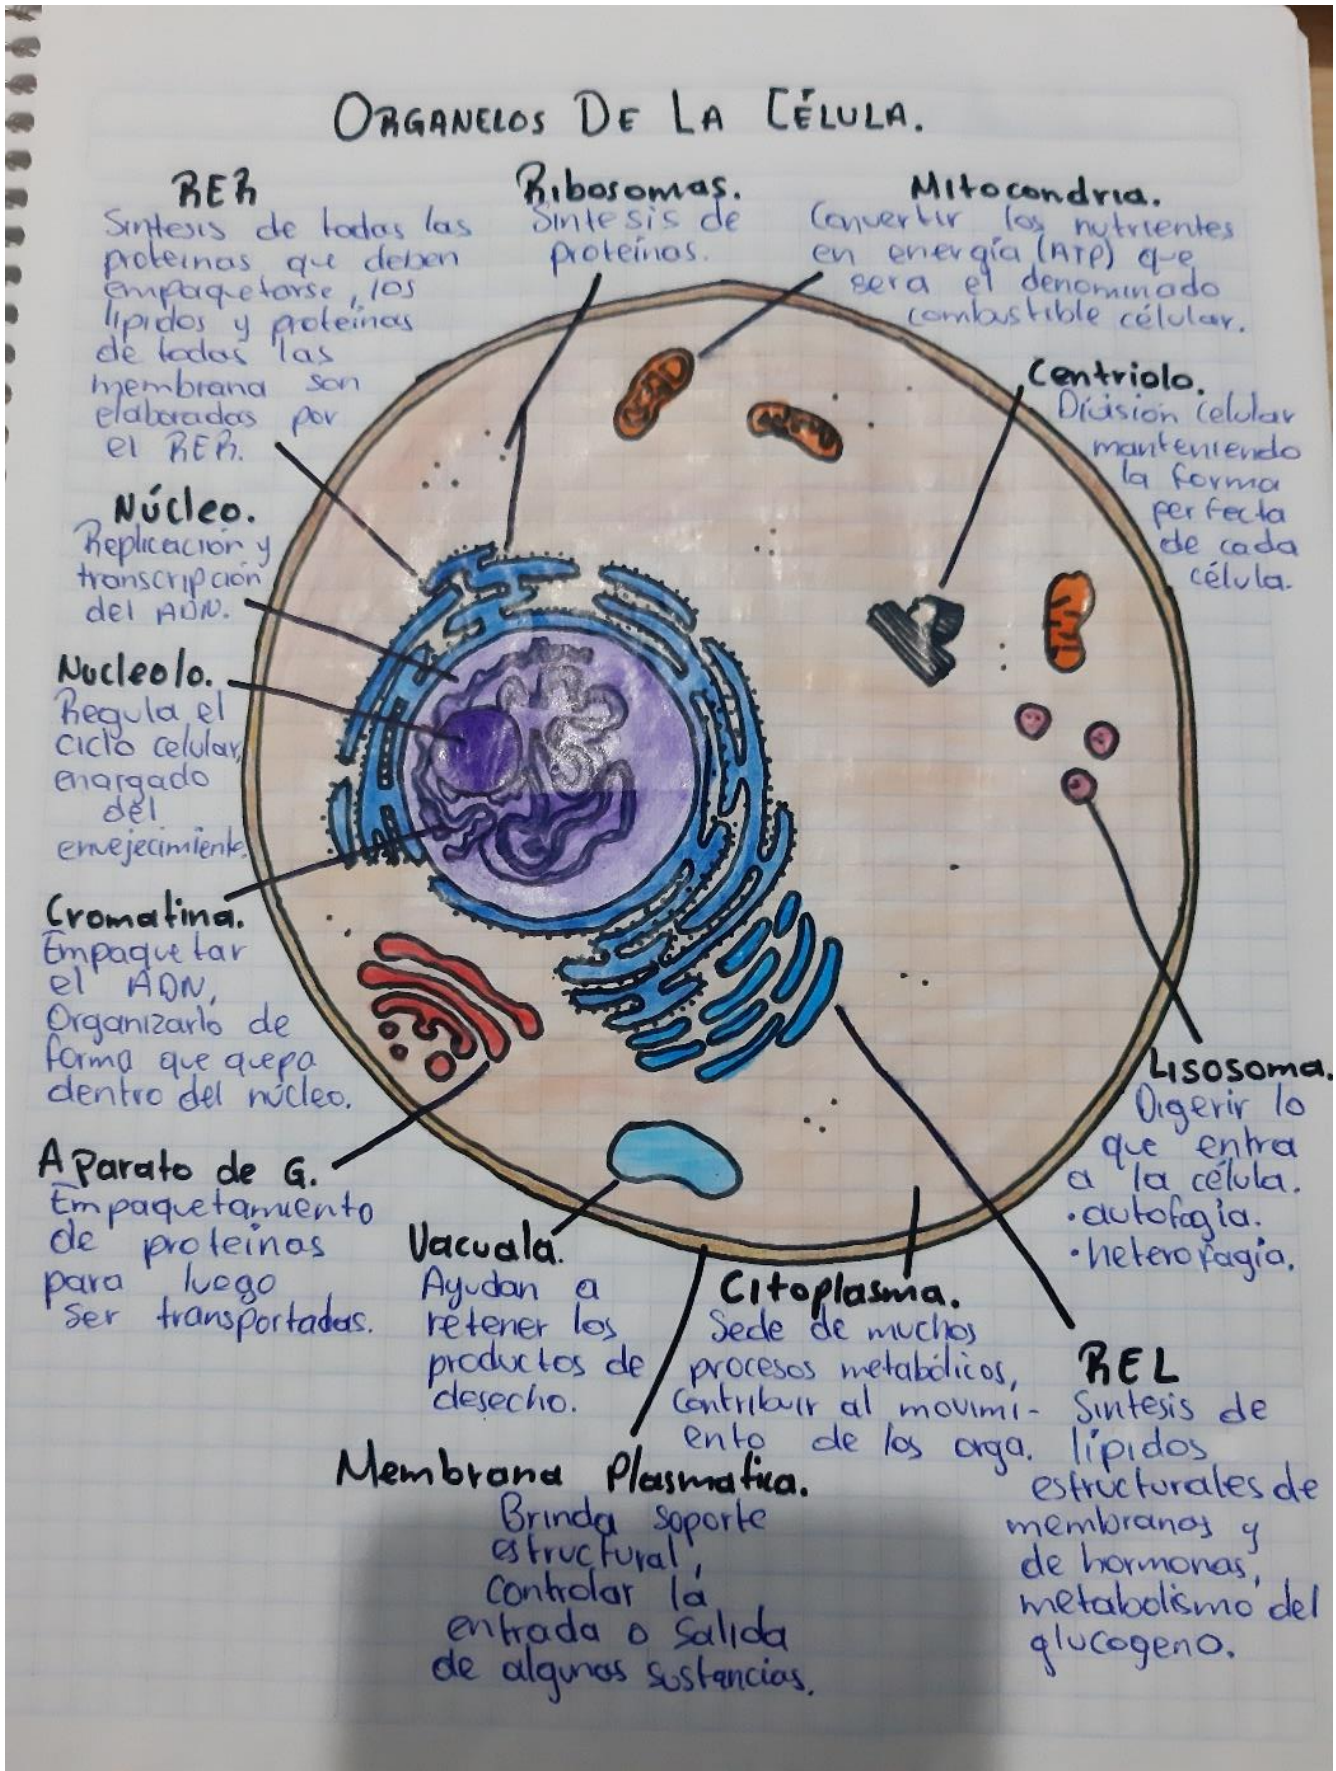 ORGANELOS DE LA CÉLULA.
RER
Sintesis de todas las
proteinas que deben
empaquetarse, los
lipidos y proteínas
de todas las
membrana son
elaboradas por
el RER.
Ribosomas.
Sintesis de
proteínas.
Mitocondria.
Convertir los nutrientes
en energía (ATP) que
sera el denominado
combustible célular.
Centriolo.
División celular
manteniendo
la forma
perfecta
de cada
célula.
Núcleo.
Replicación y
transcripción
del ADN.
Nucleolo.
Regula el
ciclo celular,
enargado
del
envejecimiento.
Cromatina.
Empaquetar
el ADN,
Organizarlo de
forma que quepa
dentro del núcleo.
Aparato de G.
Empaquetamiento
de proteinas
para luego
ser transportadas.
Vacuala.
Ayudan a
retener los
productos de
desecho.
Citoplasma.
Sede de muchos
procesos metabólicos,
Contribuir al movimi-
ento de los orga.
Lisosoma.
Digerir lo
que entra
a la célula.
•autofagia.
•heterofagia.
REL
Sintesis de
lípidos
estructurales de
membranas y
de hormonas,
metabolismo del
glucogeno.
Membrana Plasmatica.
Brinda soporte
estructural,
Controlar la
entrada o salida
de algunas sustancias.